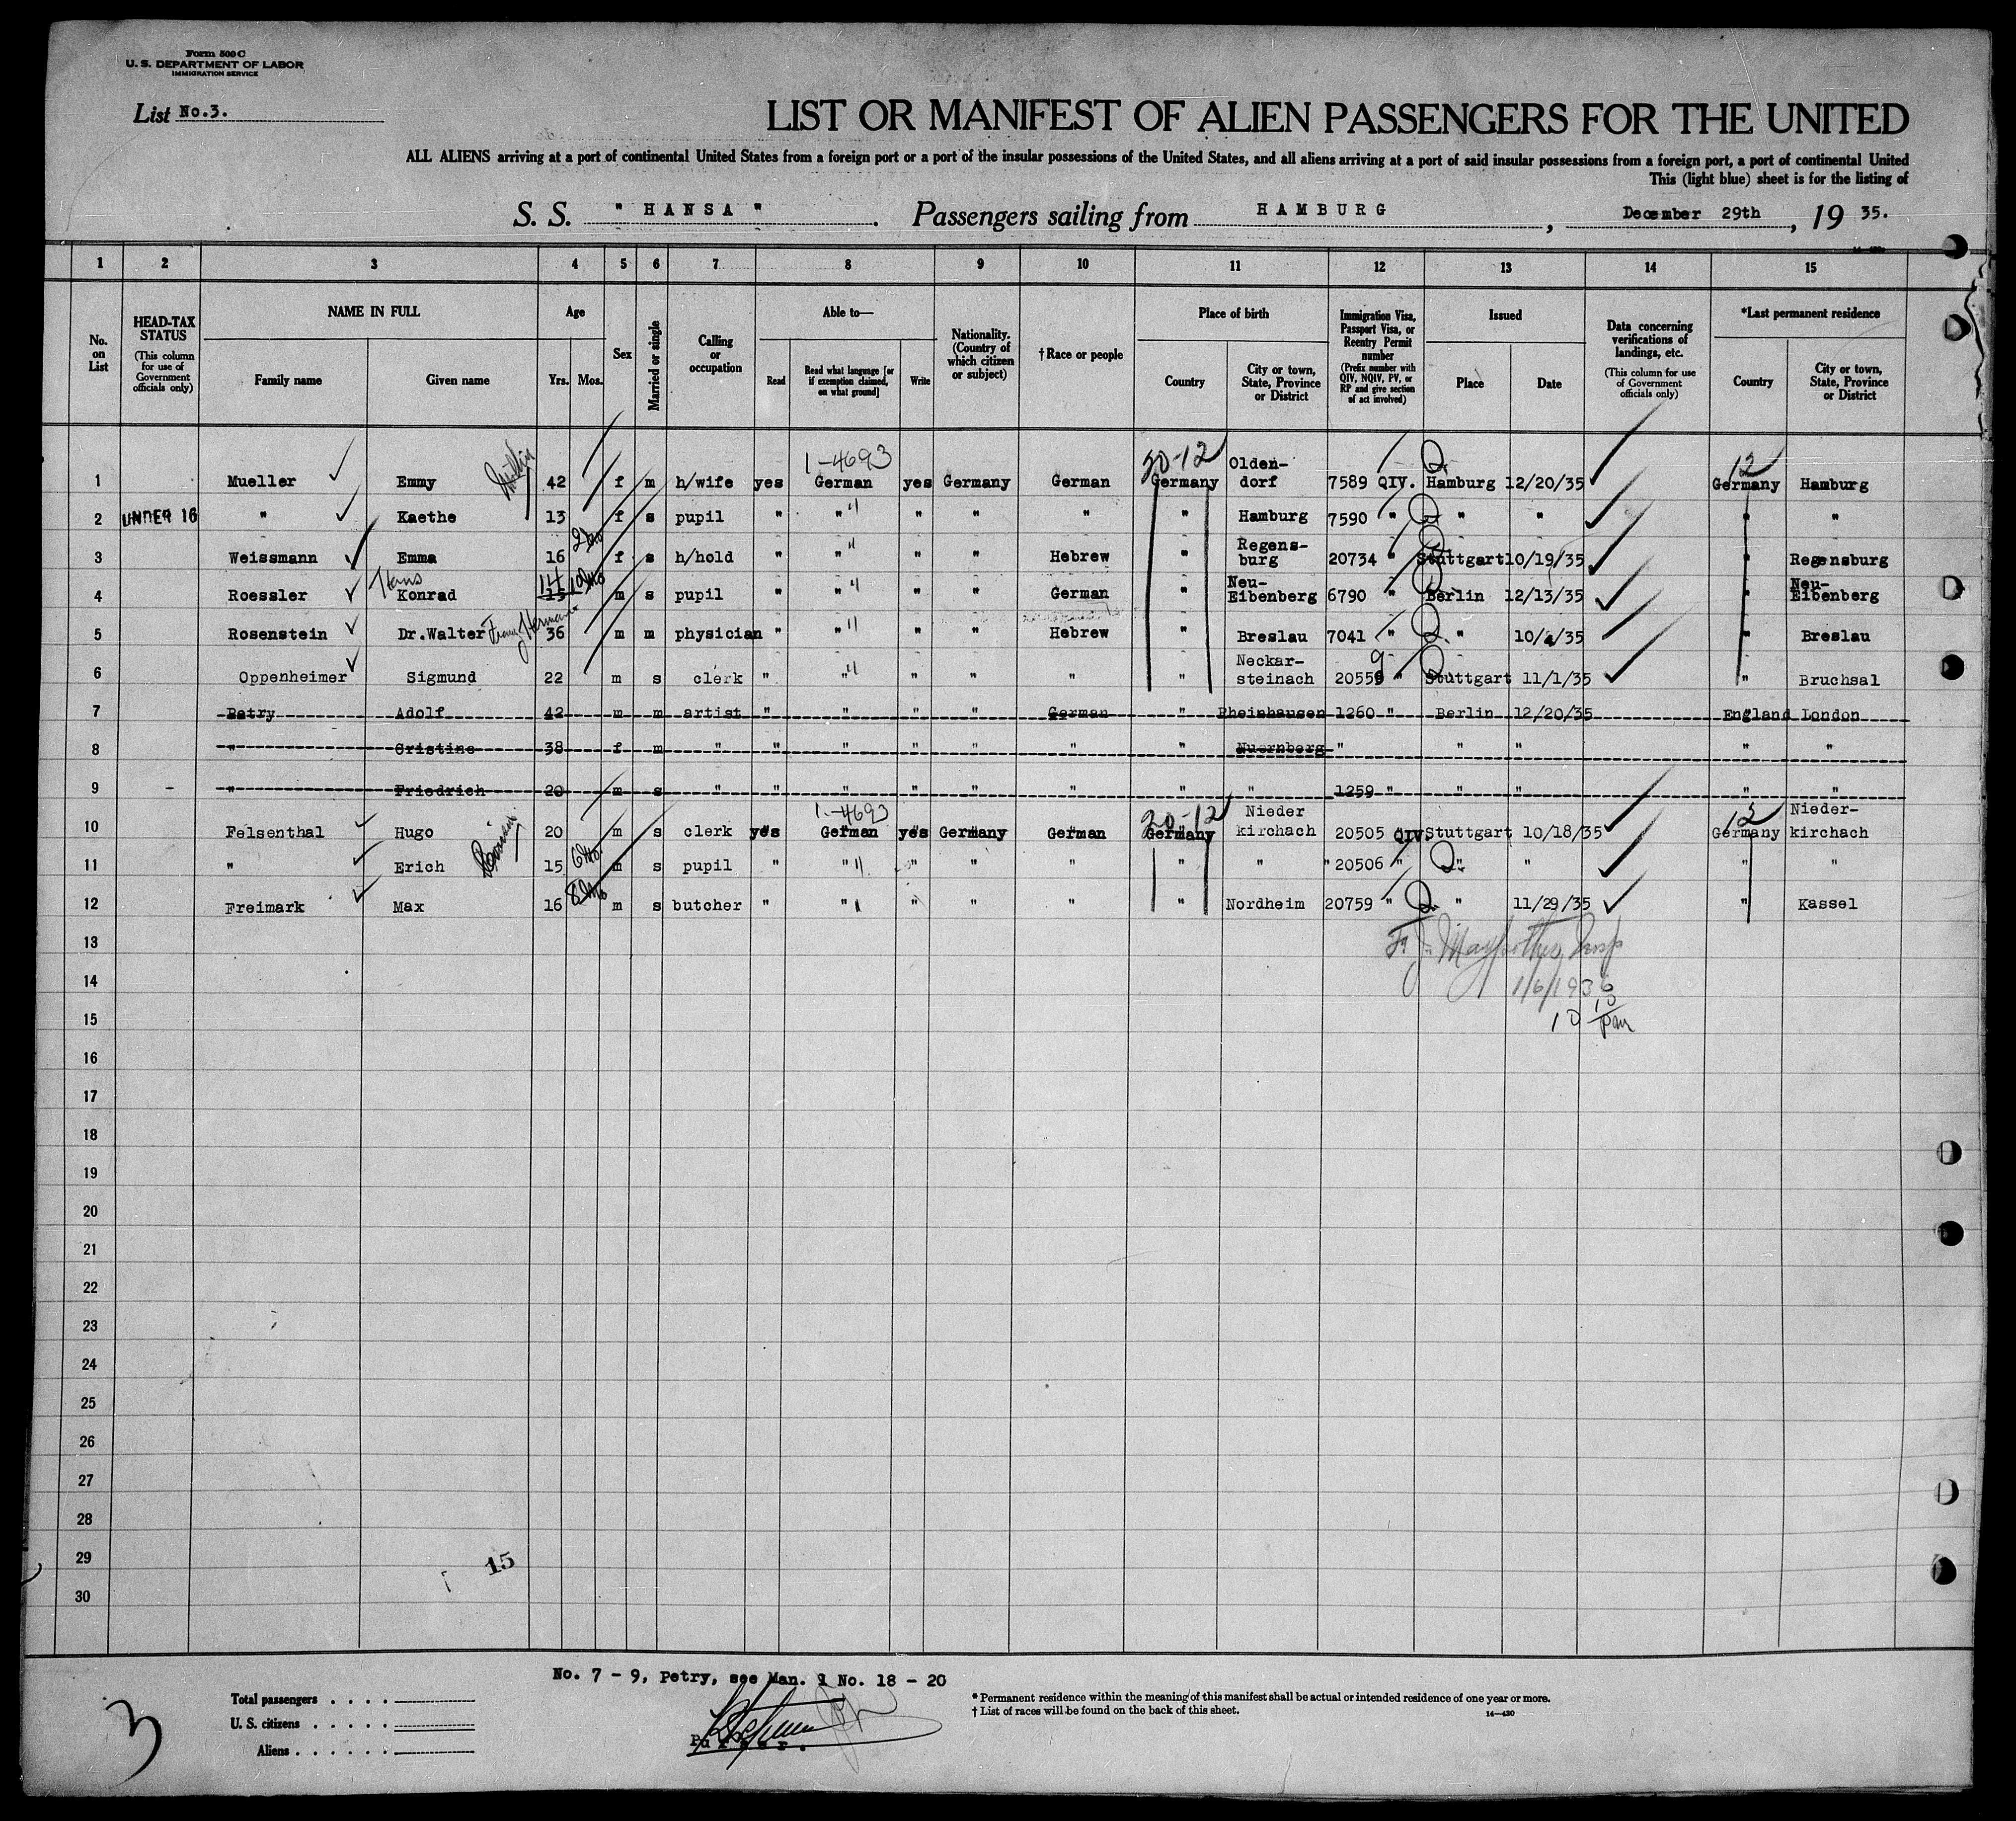 Form 500 C
U. S. DEPARTMENT OF LABOR
IMMIGRATION SERVICE
List No.3.
LIST OR MANIFEST OF ALIEN PASSENGERS FOR THE UNITED
ALL ALIENS arriving at a port of continental United States from a foreign port or a port of the insular possessions of the United States, and all aliens arriving at a port of said insular possessions from a foreign port, a port of continental United
This (light blue) sheet is for the listing of
S. S. " HANSA ". Passengers sailing from HAMBURG, December 29th, 19 35.
14-430
1 2 3 4 5 6 7 8 9 10 11 12 13 14 15
No. on List
HEAD-TAX STATUS
(This column for use of Government officials only)
NAME IN FULL
Family name
Given name
Age
Yrs. Mos.
Sex
Married or single
Calling or occupation
Able to—
Read
Read what language [or if exemption claimed, on what ground]
Write
Nationality. (Country of which citizen or subject)
† Race or people
Place of birth
Country
City or town, State, Province or District
Immigration Visa, Passport Visa, or Reentry Permit number
(Prefix number with QIV, NQIV, PV, or RP and give section of act involved)
Issued
Place
Date
Data concerning verifications of landings, etc.
(This column for use of Government officials only)
*Last permanent residence
Country
City or town, State, Province or District
1-4693 20-12 12
1 Mueller Emmy 42 f m h/wife yes German yes Germany German Germany Olden-dorf 7589 QIV. Hamburg 12/20/35 Germany Hamburg
2 UNDER 16 " Kaethe 13 f s pupil " " " " " " Hamburg 7590 " " " " "
3 Weissmann Emma 16 f s h/hold " " " " Hebrew " Regens-burg 20734 " Stuttgart 10/19/35 " Regensburg
4 Roessler Hans Konrad 14 m s pupil " " " " German " Neu-Eibenberg 6790 " Berlin 12/13/35 " Neu-Eibenberg
5 Rosenstein Dr.Walter Franz Herman 36 m m physician " " " " Hebrew " Breslau 7041 " " 10/4/35 " Breslau
6 Oppenheimer Sigmund 22 m s clerk " " " " " " Neckar-steinach 20559 " Stuttgart 11/1/35 " Bruchsal
7 Petry Adolf 42 m m artist " " " " German " Rheinhausen 1260 " Berlin 12/20/35 England London
8 " Cristine 38 f m " " " " " " " Nuernberg " " " " "
9 " Friedrich 20 m s " " " " " " " " 1259 " " " " "
1-4693 20-12 12
10 Felsenthal Hugo 20 m s clerk yes German yes Germany German Germany Nieder kirchach 20505 QIV. Stuttgart 10/18/35 Germany Nieder-kirchach
11 " Erich 15 6 Mo m s pupil " " " " " " " 20506 " " " " "
12 Freimark Max 16 8 Mo m s butcher " " " " " " Nordheim 20759 " " 11/29/35 " Kassel
13
14 1/6/1936
15
16
17
18
19
20
21
22
23
24
25
26
27
28
29
30
15
3
No. 7 - 9, Petry, see Man. 1 No. 18 - 20
Total passengers
U. S. citizens
Aliens
Purser.
* Permanent residence within the meaning of this manifest shall be actual or intended residence of one year or more.
† List of races will be found on the back of this sheet.
14—430